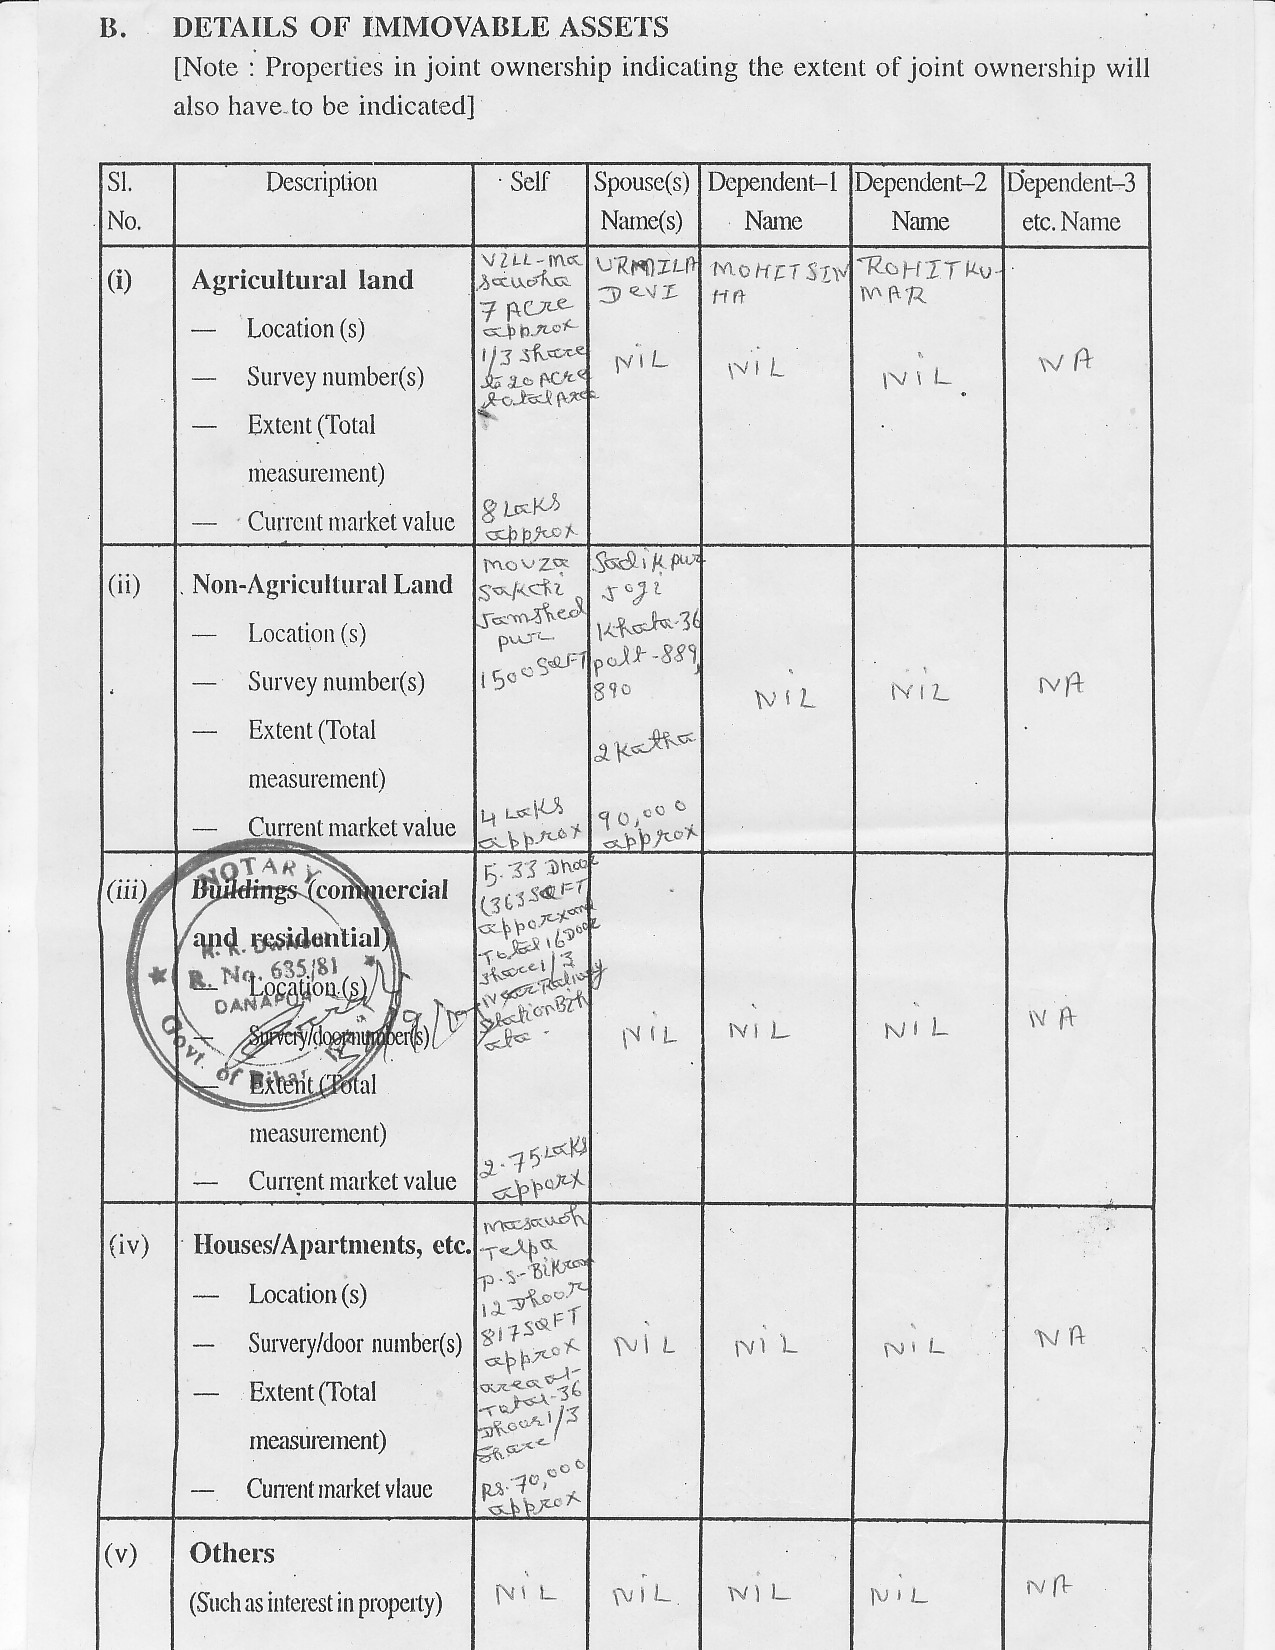 B. DETAILS OF IMMOVABLE ASSETS
[Note : Properties in joint ownership indicating the extent of joint ownership will
also have to be indicated]
Sl. No. Description Self Spouse(s) Name(s) Dependent–1 Name Dependent–2 Name Dependent–3 etc. Name
(i) Agricultural land
— Location (s)
— Survey number(s)
— Extent (Total
measurement)
— Current market value
VILL-Ma
sauoha
7 ACre
approx
1/3 share
to 20 ACre
total Area
8 Laks
approx
URMILA
DevI
NiL
MOHITSIN
HA
NiL
ROHITKU-
MAR
NiL.
NA
(ii) Non-Agricultural Land
— Location (s)
— Survey number(s)
— Extent (Total
measurement)
— Current market value
Mouza
Sakchi
Jamshed
pur
1500SQFT
4 Laks
approx
Sadikpur
Jogi
Khata-36
polt-889,
890
2 Katha
90,000
approx
NiL
NiL
NA
(iii) Buildings (commercial
and residential)
— Location (s)
— Survery/doornumber(s)
— Extent (Total
measurement)
— Current market value
NOTARY
R. No. 635/81
DANAPUR
Govt. of Bihar
5.33 Dhoor
(363SQFT
Total 16 Door
share 1/3
Station Bih
ata
2.75 Laks
apporx
NiL
NiL
NiL
NA
(iv) Houses/Apartments, etc.
— Location (s)
— Survery/door number(s)
— Extent (Total
measurement)
— Current market vlaue
Masauoh
Telpa
P.S-Bikram
12 Dhoor
817SQFT
approx
area of
Total-36
Dhoor 1/3
Share
Rs.70,000
approx
NiL
NiL
NiL
NA
(v) Others
(Such as interest in property)
NiL
NiL
NiL
NiL
NA